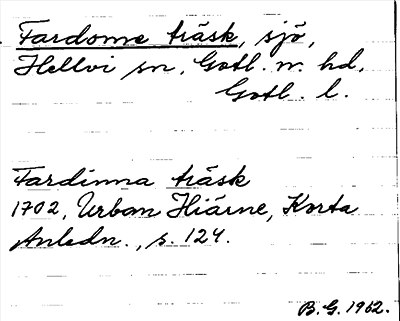 Fardome träsk, sjö,
Hellvi sn, Gotl. n. hd,
Gotl. l.
Fardinna träsk
1702, Urban Hiärne, Korta
Anledn., s. 124.
B.G. 1962.